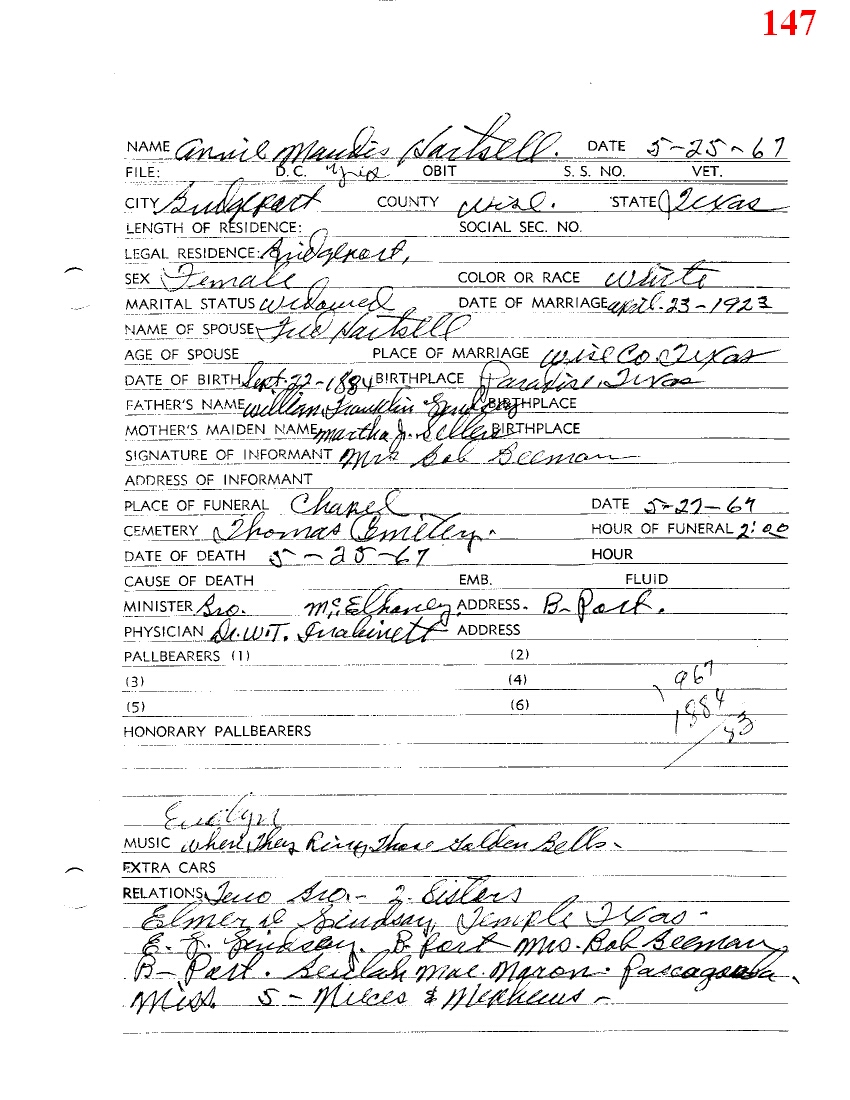 147
NAME Annie Maudis Hartsell. DATE 5-25-67
FILE: D.C. OBIT S. S. NO. VET.
CITY Bridgeport COUNTY Wise. STATE Texas
LENGTH OF RESIDENCE: SOCIAL SEC. NO.
LEGAL RESIDENCE: Bridgeport,
SEX Female COLOR OR RACE White
MARITAL STATUS Widowed DATE OF MARRIAGE April-23-1923
NAME OF SPOUSE Hartsell
AGE OF SPOUSE PLACE OF MARRIAGE Wise Co. Texas
DATE OF BIRTH Sept-22-1884 BIRTHPLACE Paradise, Texas
FATHER'S NAME William Franklin BIRTHPLACE
MOTHER'S MAIDEN NAME Martha J. Sellers BIRTHPLACE
SIGNATURE OF INFORMANT Mrs Bob Beeman
ADDRESS OF INFORMANT
PLACE OF FUNERAL Chapel DATE 5-27-67
CEMETERY Thomas Cemetery. HOUR OF FUNERAL 2:00
DATE OF DEATH 5-25-67 HOUR
CAUSE OF DEATH EMB. FLUID
MINISTER Bro. McElhaney ADDRESS. B-Port.
PHYSICIAN Dr. W.T. ADDRESS
PALLBEARERS (1) (2)
(3) (4) 967
(5) (6) 1884
HONORARY PALLBEARERS 83
Evelyn
MUSIC When They Ring Those Golden Bells.
EXTRA CARS
RELATIONS Two Bro.- 2. Sisters
Elmer Lindsay, Temple Texas-
E. J. Lindsay. B-Port Mrs. Bob Beeman,
B-Port. Beulah Mae. Pascagoula,
Miss. 5-Nieces & Nephews-